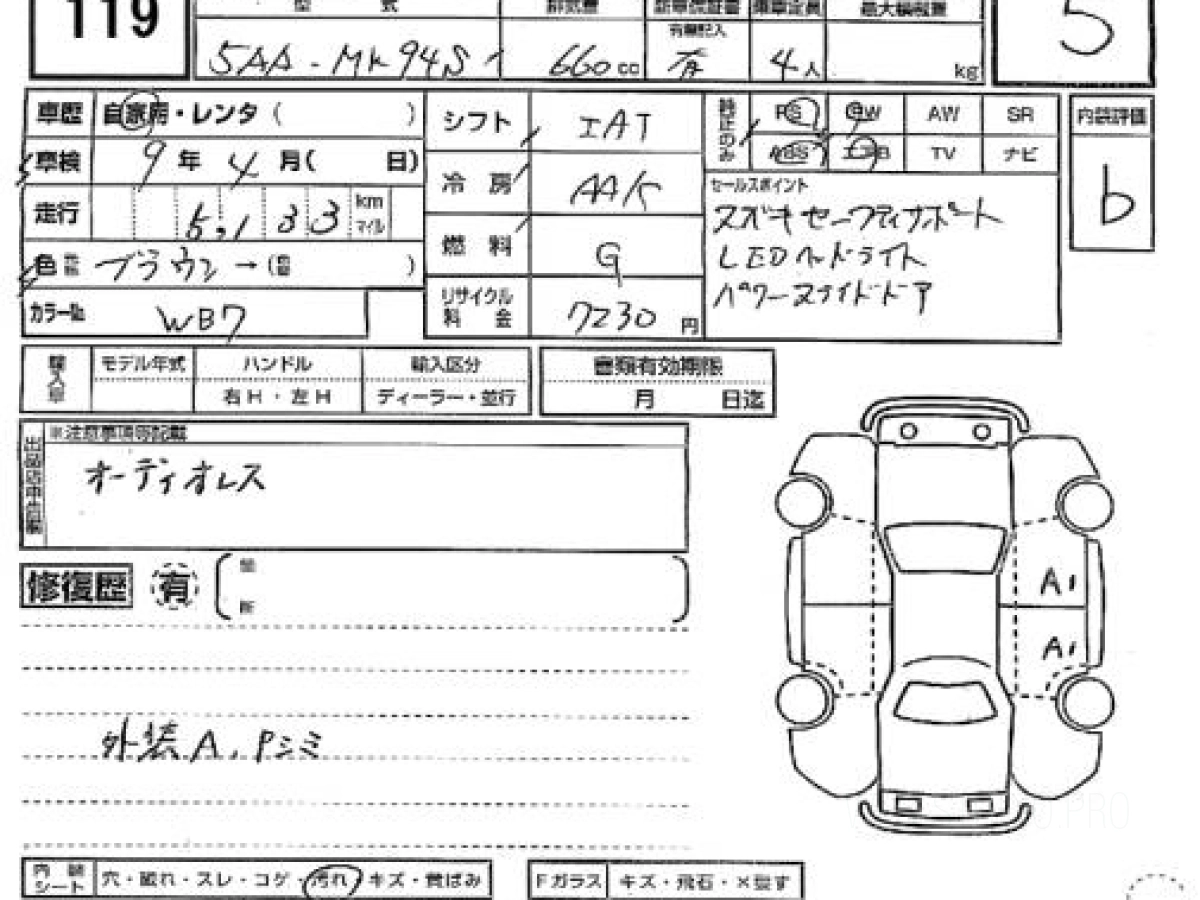 119
型式 排気量 記入
5AA-MK94S 660cc 有 4人 kg
5
車歴 自家用・レンタ( )
車検 9年 4月( 日)
走行 5,133 km マイル
色 ブラウン→( )
カラーNo WB7
シフト IAT
冷房 AAK
燃料 G
リサイクル料金 7230円
純正のみ PS PW AW SR
ABS エアB TV ナビ
セールスポイント
スズキセーフティサポート
LEDヘッドライト
パワースライドドア
内装評価
b
輸入車 モデル年式 ハンドル 輸入区分
右H・左H ディーラー・並行
書類有効期限
月 日迄
出品店申告欄
※注意事項等記載
オーディオレス
修復歴 有
外装A,Pシミ
A1
A1
PRO
シート 穴・破れ・スレ・コゲ・汚れ・キズ・黄ばみ
Fガラス キズ・飛石・X要す